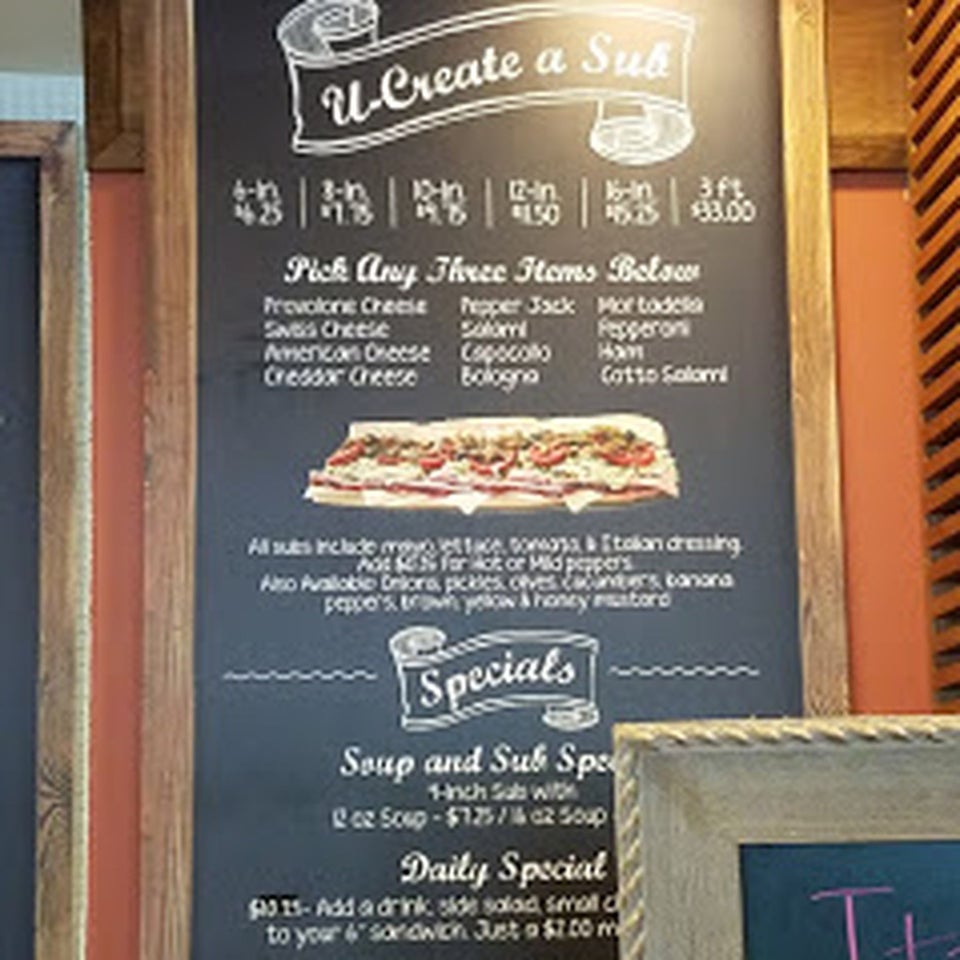 U-Create a Sub
6-In. 8-In. 10-In. 12-In. 16-In. 3 ft.
$6.25 $7.75 $9.75 $11.50 $15.25 $33.00
Pick Any Three Items Below
Provolone Cheese Pepper Jack Mortadella
Swiss Cheese Salami Pepperoni
American Cheese Capocollo Ham
Cheddar Cheese Bologna Cotto Salami
All subs include mayo, lettuce, tomato, & Italian dressing.
Add for Hot or Mild peppers.
Also Available: Onions, pickles, olives, cucumbers, banana
peppers, brown, yellow & honey mustard
Specials
Soup and Sub
Sub with
12 oz Soup - $7.25 / 16 oz Soup
Daily Special
Add a drink, side salad, small
to your 6" sandwich. Just a $2.00